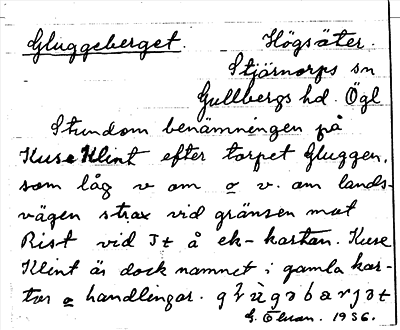 Gluggeberget. Högsäter.
Stjärnorps sn
Gullbergs hd. Ögl
Stundom benämningen på
Kuse Klint efter torpet Gluggen,
som låg v om o v. om lands-
vägen strax vid gränsen mot
Rist vid Jt å ek-kartan. Kuse
Klint är dock namnet i gamla kar-
tor o handlingar.
1936.